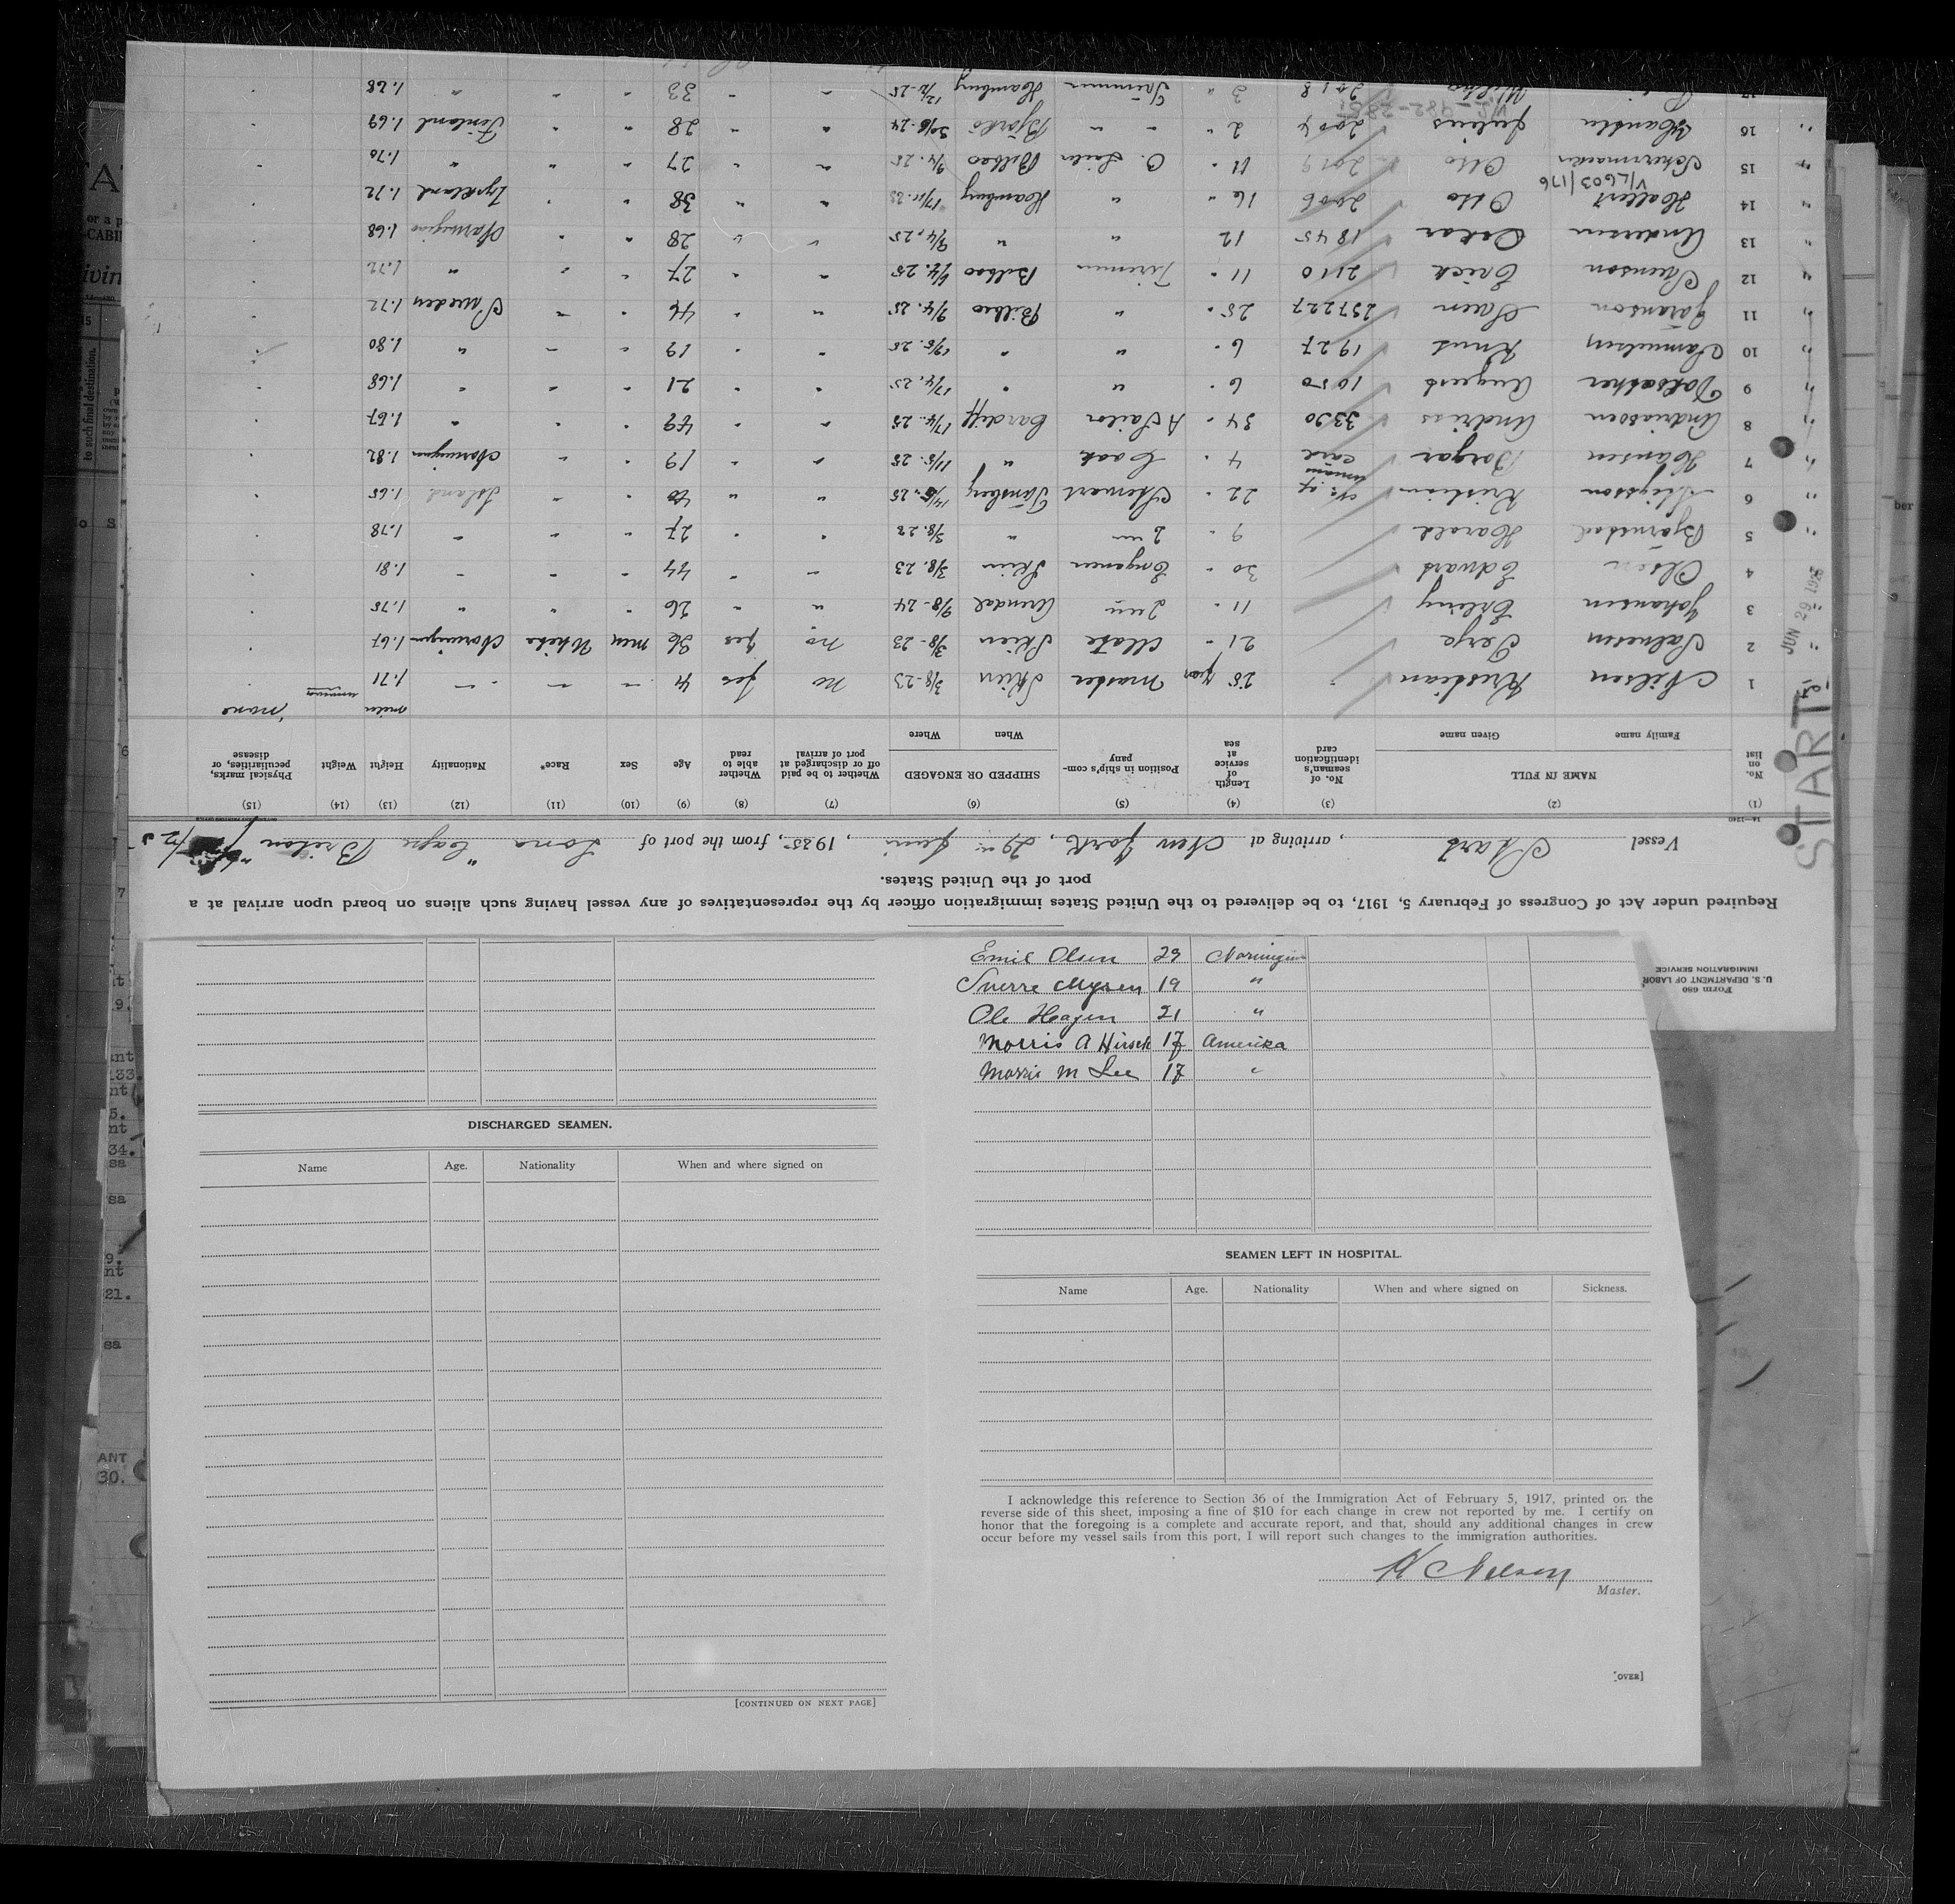 Form 680
U. S. DEPARTMENT OF LABOR
IMMIGRATION SERVICE
Required under Act of Congress of February 5, 1917, to be delivered to the United States immigration officer by the representatives of any vessel having such aliens on board upon arrival at a
port of the United States.
Vessel Start, arriving at New York, 29 Juni, 1925, from the port of "Cape Breton"
(1) (2) (3) (4) (5) (6) (7) (8) (9) (10) (11) (12) (13) (14) (15)
No. on list NAME IN FULL Family name Given name No. of seaman's identification card Length of service at sea Position in ship's company SHIPPED OR ENGAGED When Where Whether to be paid off or discharged at port of arrival Whether able to read Age Sex Race* Nationality Height Weight Physical marks, peculiarities, or disease
1 Nilsen Kristian 28 year master 3/8-23 Skien no yes 44 " " " 1.71 none
2 Salvesen Terje 21 " Mate 3/8-23 Skien no yes 36 men White Norwegian 1.67
3 Johansen Erling 11 " 2nd 9/8-24 Arendal " " 26 " " " 1.75
4 Olsen Edward 30 " Engeneer 3/8.23 Skien " " 44 " " " 1.81
5 Bjørnstad Harald 9 " 2nd 3/8.23 " " " 27 " " " 1.78
6 Kristian 22 " Stewart 25 Tønsberg " " 40 " " Island 1.65
7 Hansen Borgar 4 " Cook 11/5.25 " " " 19 " " Norwegian 1.82
8 Andriassen Andrias 3390 34 " A Sailor 17/4.25 Cardiff " " 49 " " " 1.67
9 August 1050 6 " " 17/4.25 " " " 21 " " " 1.68
10 Samuelsen Knut 1927 6 " " 25 " " " 19 " " " 1.80
11 Göranson 257227 25 " " 9/4.25 Bilbao " " 46 " " Sweden 1.72
12 Svenson Erich 2110 11 " Fireman 25 Bilbao " " 27 " " " 1.72
13 Andersen Oskar 1845 12 " 9/4.25 " " " 28 " " Norwegian 1.68
14 Hallert Otto 2006 16 " " 25 Hamburg " " 38 " " Tyskland 1.72
V/L603/176
15 Schurmacher Otto 2019 11 " O. Sailor 9/4.25 Bilbao " " 27 " " " 1.70
16 Hansen Julius 2004 2 " " 24 Björkö " " 28 " " Finland 1.69
17 2018 3 " Trimmer 12/2-25 Hamburg " " 33 " " " 1.68
JUN 29 1925
START
Emil Olsen 29 Norwegian
Sverre Myren 19 "
Ole Hagen 21 "
Morris A Hirsch 17 Amerika
Morris M Lee 17 "
DISCHARGED SEAMEN.
Name Age. Nationality When and where signed on
[CONTINUED ON NEXT PAGE]
SEAMEN LEFT IN HOSPITAL.
Name Age. Nationality When and where signed on Sickness.
I acknowledge this reference to Section 36 of the Immigration Act of February 5, 1917, printed on the
reverse side of this sheet, imposing a fine of $10 for each change in crew not reported by me. I certify on
honor that the foregoing is a complete and accurate report, and that, should any additional changes in crew
occur before my vessel sails from this port, I will report such changes to the immigration authorities.
K Nilsen
Master.
[OVER]